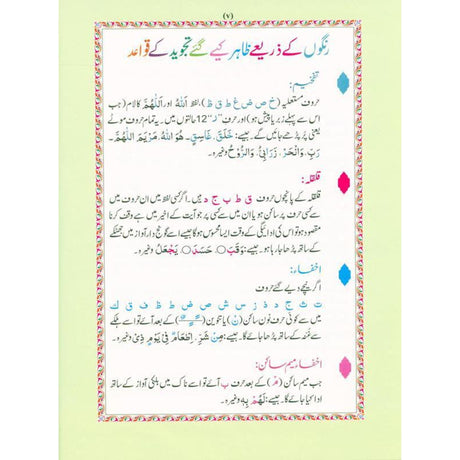 (۷)
رنگوں کے ذریعے ظاہر کیے گئے تجوید کے قواعد
تفخیم:
حروف مستعلیہ (خ ص ض غ ط ق ظ)، لفظ اَللّٰهُ اور اَللّٰهُمَّ کا لام (جب
اس سے پہلے زبر یا پیش ہو) اور حرف "ر" 12 حالتوں میں۔ یہ تمام حروف موٹے
یعنی پُر پڑھے جائیں گے۔ جیسے: خَلَقَ، غَاسِقٍ۔ هُوَ اللهُ، مَرْيَمَ اللّٰهُمَّ۔
رَبِّ، وَانْحَرْ، زَرَابِیُّ، وَالرُّوْحُ وغیرہ۔
قلقلہ:
قلقلہ کے پانچوں حروف ق ط ب ج د ہیں۔ اگر کسی لفظ میں ان حروف میں
سے کسی حرف پر سکون ہو یا ان میں سے کسی حرف پر جو آیت کے اخیر میں ہے وقف کرنا
مقصود ہو تو اس کی ادائیگی کے وقت ایسا محسوس ہو گا جیسے گونج دار آواز میں جھٹکے
کے ساتھ پڑھا جا رہا ہو۔ جیسے: وَقَبَ○ حَسَدَ○ يَجْعَلُ وغیرہ۔
اخفاء:
اگر نیچے دیے گئے حروف
ت ث ج د ذ ز س ش ص ض ط ظ ف ق ك
میں سے کوئی حرف نون ساکن (نْ) یا تنوین کے بعد آئے تو اسے ہلکے
سے غنہ کے ساتھ پڑھا جائے گا۔ جیسے: مِنْ شَرِّ، اِطْعَامٌ فِیْ يَوْمٍ ذِیْ وغیرہ۔
اخفاء میم ساکن:
جب میم ساکن (مْ) کے بعد حرف ب آئے تو اسے ناک میں ہلکی آواز کے ساتھ
ادا کیا جائے گا۔ جیسے: لَهُمْ بِهٖ وغیرہ۔